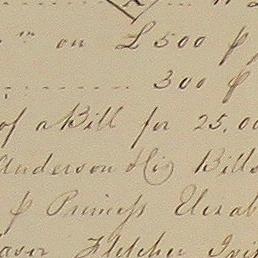 on £500 ⅌
300 ⅌
of a Bill for 25.00
Anderson His Bills
⅌ Princess Elizab
Fletcher